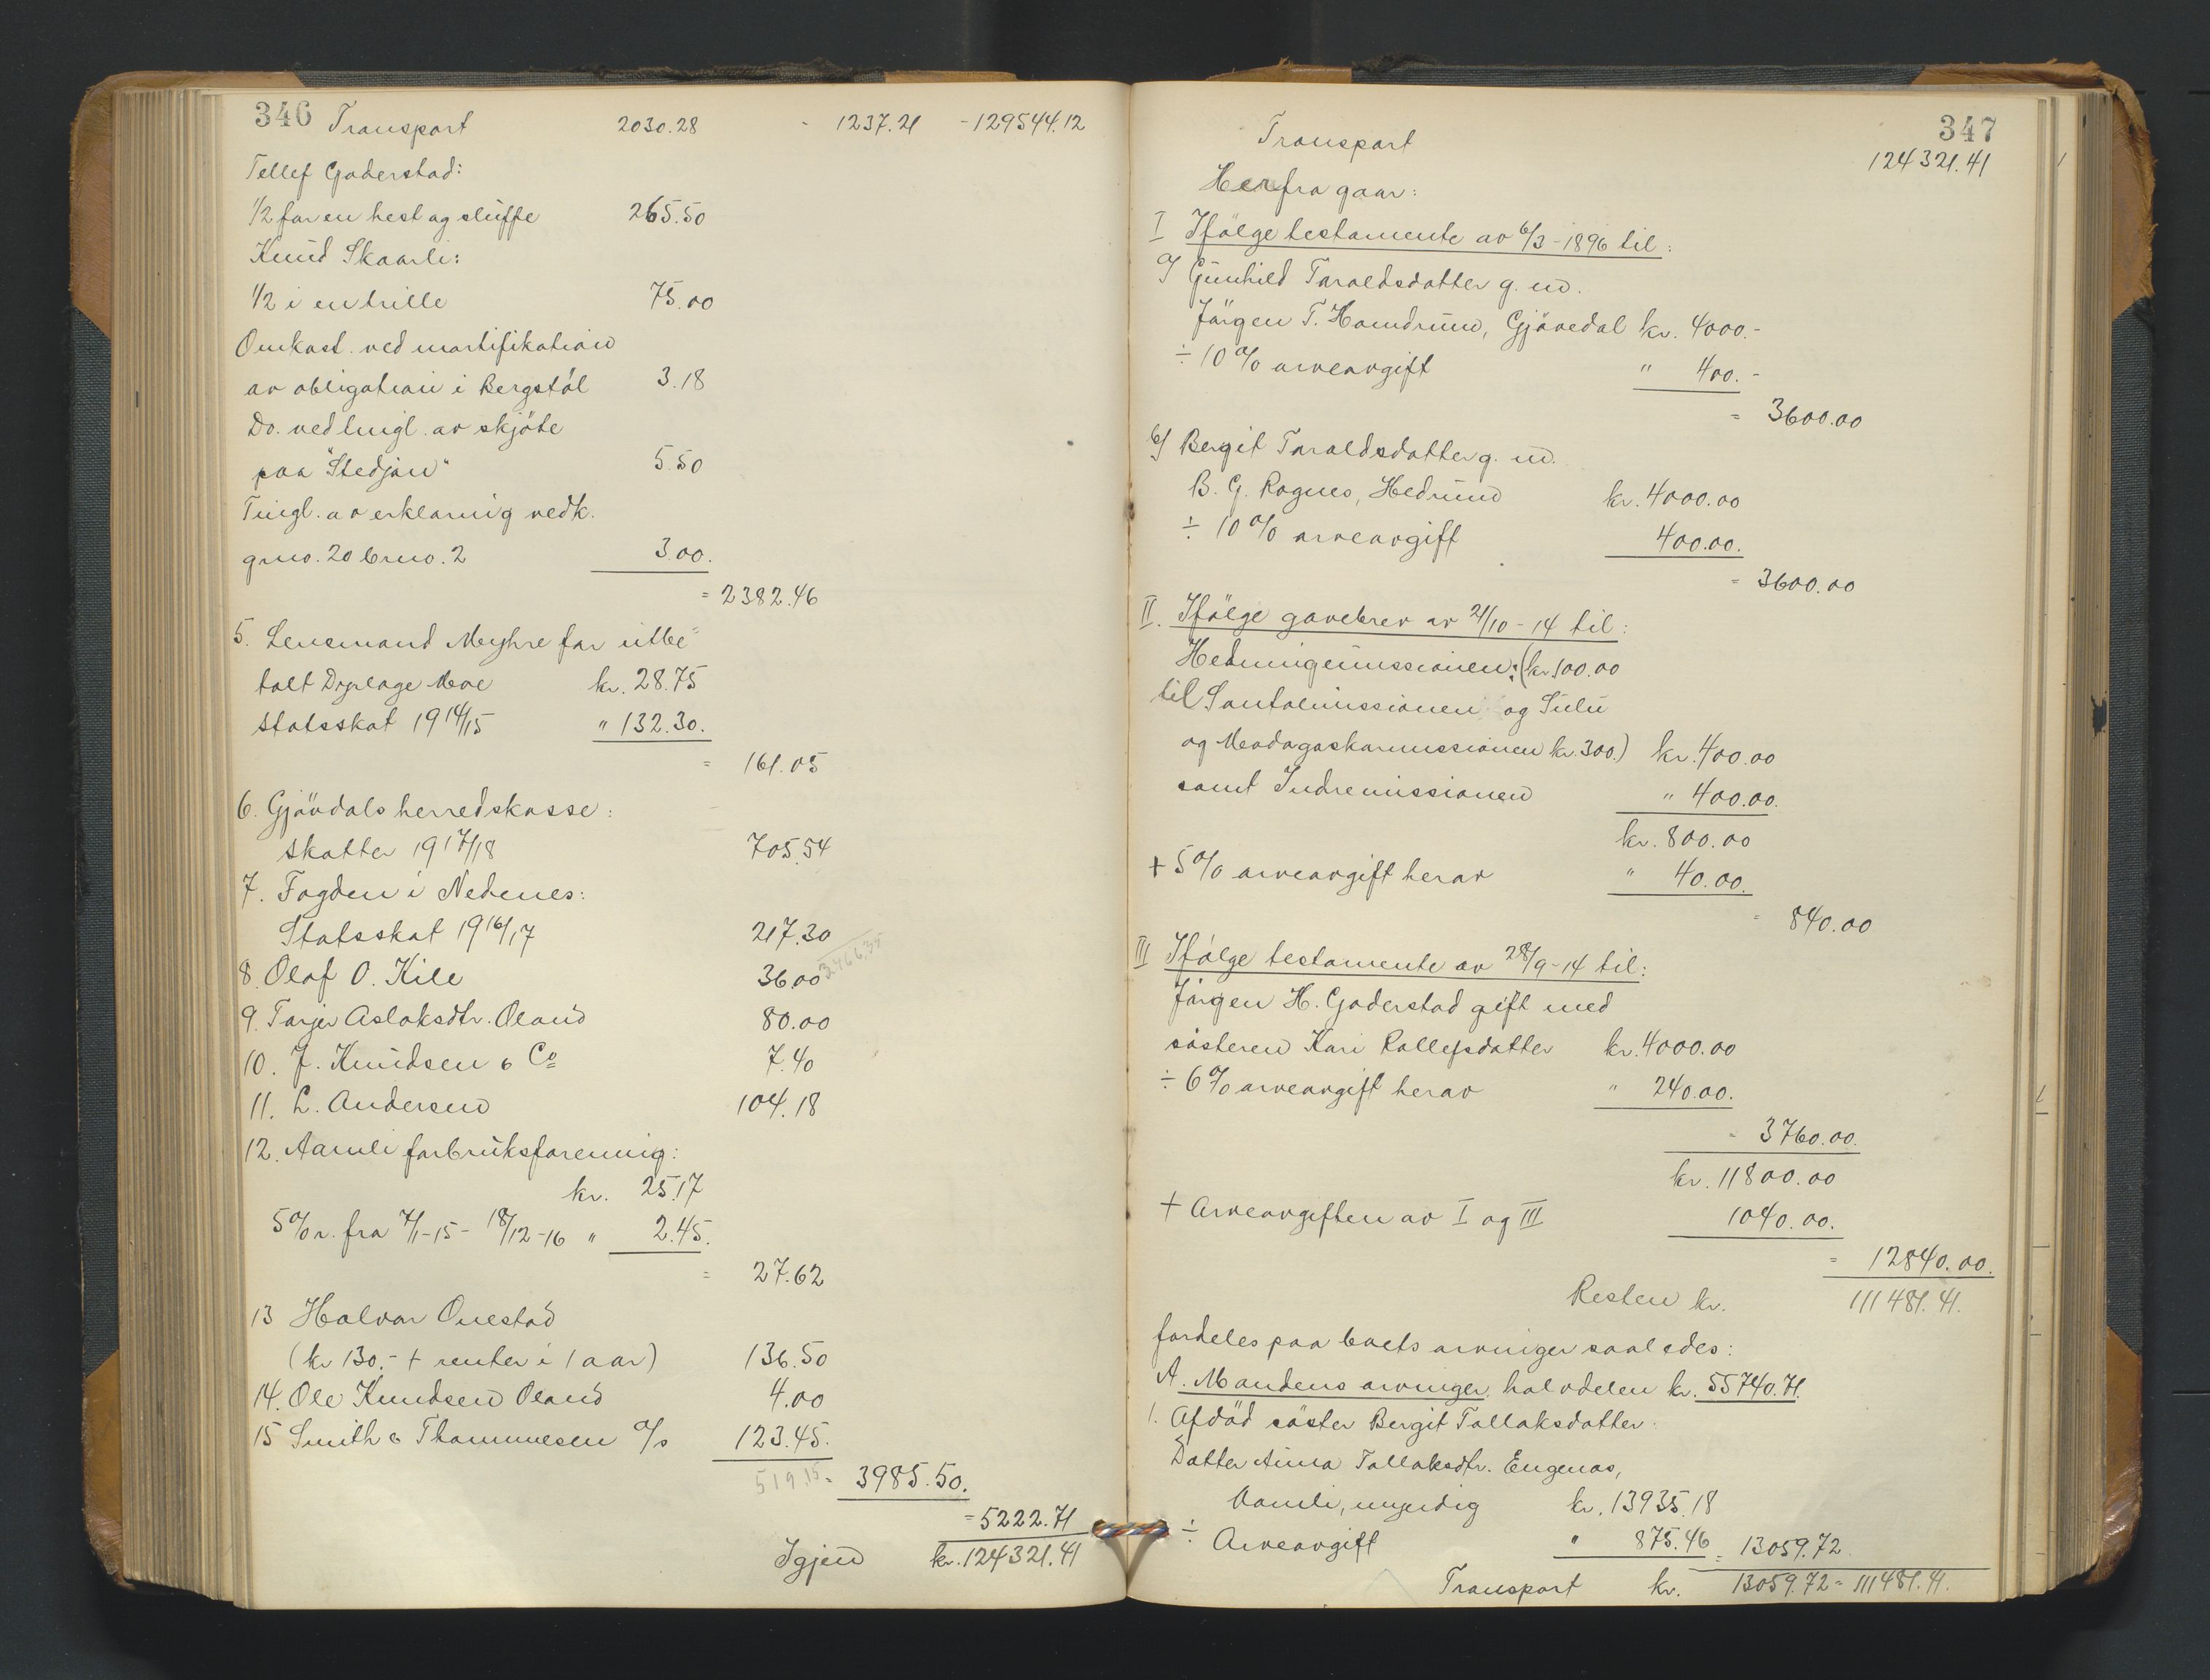 346 Transport 2030.28 - 1237.21 - 129544.12
Tellef Gaderstad:
1/2 for en hest og sluffe 265.50
Knud Skaarli:
1/2 i en trille 75.00
Omkost. ved mortifikation
av obligation i Bergstøl 3.18
Do. ved tingl. av skjöte
paa "Stedjan" 5.50
Tingl. av erklæring vedk.
grno. 20 brno. 2 3.00.
= 2382.46
5. Lensmand Myhre for utbe=
talt Dyplage Moe kr. 28.75
Statsskat 1914/15 " 132.30.
= 161.05
6. Gjövdals herredskasse:
Skatter 1917/18 705.54
7. Fogden i Nedenes:
Statsskat 1916/17 217.30
3466,35
8. Olaf O. Kile 36.00
9. Tarjer Aslaksdtr. Öland 80.00
10. J. Knudsen & Co 7.40
11. L. Andersen 104.18
12. Aamli forbruksforening:
kr. 25.17
5% r. fra 7/1-15 - 18/12-16 " 2.45.
= 27.62
13 Halvor Ovestad
(kr 130.- + renter i 1 aar) 136.50
14. Ole Knudsen Öland 4.00
15 Smith & Thommesen A/s 123.45.
519.15 = 3985.50.
= 5222.71
Igjen kr. 124321.41
347
Transport 124321.41
Herfra gaar:
I Ifölge testamente av 6/3-1896 til:
a/ Gunhild Taraldsdatter g. m.
Jörgen T. Homdrum, Gjövedal kr. 4000.-
÷ 10% arveavgift " 400.-
= 3600.00
b/ Bergit Taraldsdatter g. m.
B. G. Rognes, Hedrum kr. 4000.00
÷ 10% arveavgift 400.00.
= 3600.00
II. Ifölge gavebrev av 21/10-14 til:
Hedningemissionen: (kr. 100.00
til Santalmissionen og Sulu
og Madagaskarmissionen kr. 300.) kr. 400.00
samt Indremissionen " 400.00.
kr. 800.00
+ 5% arveavgift herav " 40.00.
= 840.00
III Ifölge testamente av 28/9-14 til:
Jörgen H. Gaderstad gift med
søsteren Kari Rollefsdatter kr. 4000.00
÷ 6% arveavgift herav " 240.00.
= 3760.00.
kr. 11800.00
+ Arveavgiften av I og III 1040.00.
= 12840.00.
Resten kr. 111481.41.
fordeles paa boets arvinger saaledes:
A. Mandens arvinger, halvdelen kr. 55740.71.
1. Afdöd söster Bergit Tallaksdatter.
Datter Anna Tallaksdtr. Engenas,
Aamli, umyndig kr. 13935.18
÷ Arveavgift " 875.46 = 13059.72.
Transport kr. 13059.72 = 111481.41.